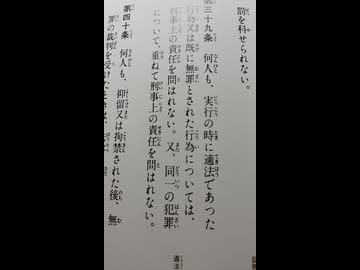 罰を科せられない。
第三十九条　何人も、実行の時に適法であった
行為又は既に無罪とされた行為については、
刑事上の責任を問はれない。又、同一の犯罪
について、重ねて刑事上の責任を問はれない。
第四十条　何人も、抑留又は拘禁された後、無
罪の裁判を受けたときは、
適法